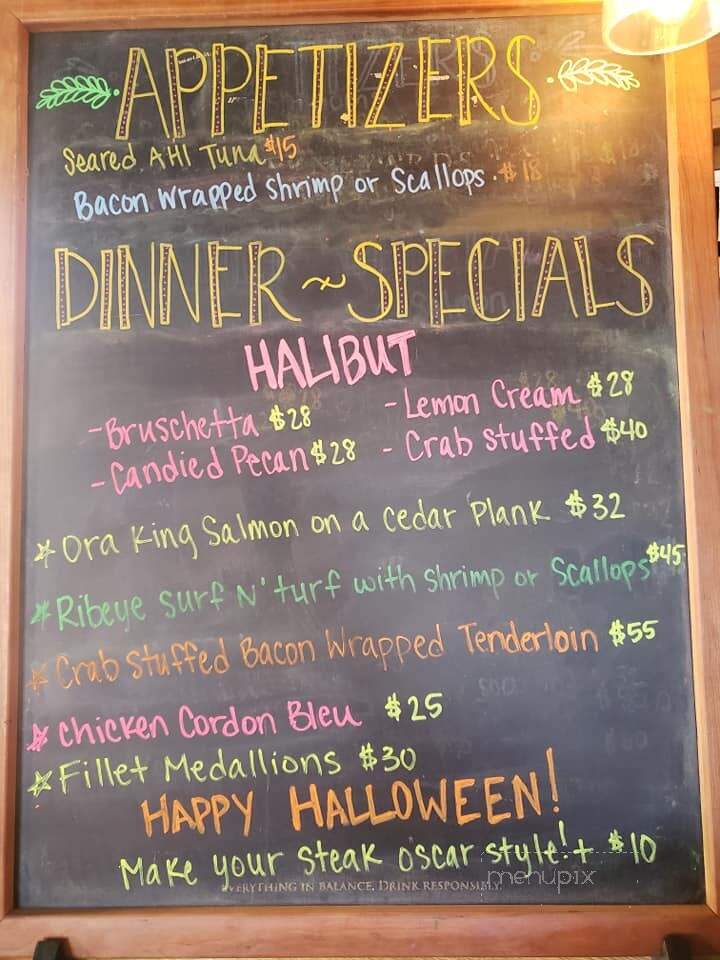 APPETIZERS
Seared AHI Tuna $15
Bacon Wrapped Shrimp or Scallops. $18
DINNER ~ SPECIALS
HALIBUT
- Bruschetta $28
- Lemon Cream $28
- Candied Pecan $28
- Crab Stuffed $40
* Ora King Salmon on a Cedar Plank $32
* Ribeye Surf N' turf with Shrimp or Scallops $45
* Crab Stuffed Bacon Wrapped Tenderloin $55
* Chicken Cordon Bleu $25
* Fillet Medallions $30
HAPPY HALLOWEEN!
Make your Steak oscar style! + $10
EVERYTHING IN BALANCE. DRINK RESPONSIBLY.
menupix